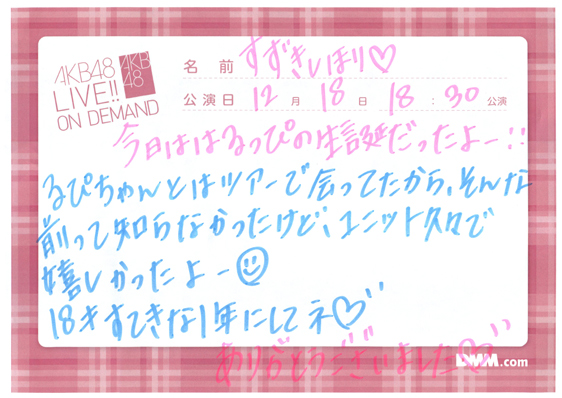 AKB48
LIVE!!
ON DEMAND
AKB
48
名前 すずきしほり♡
公演日 12月 18日 18:30公演
今日ははるっぴの生誕だったよー!!
るぴちゃんとはツアーで会ってたから、そんな
前って知らなかったけど、ユニット久々で
嬉しかったよー☺
18才すてきな1年にしてネ♡
ありがとうございました♡
DMM.com